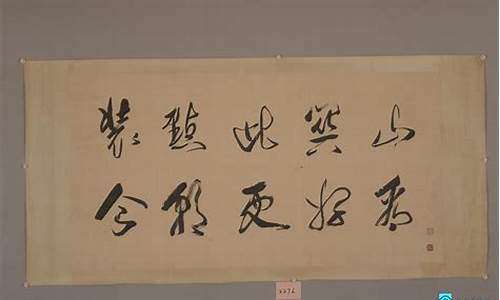 装點此關山
今朝更好看